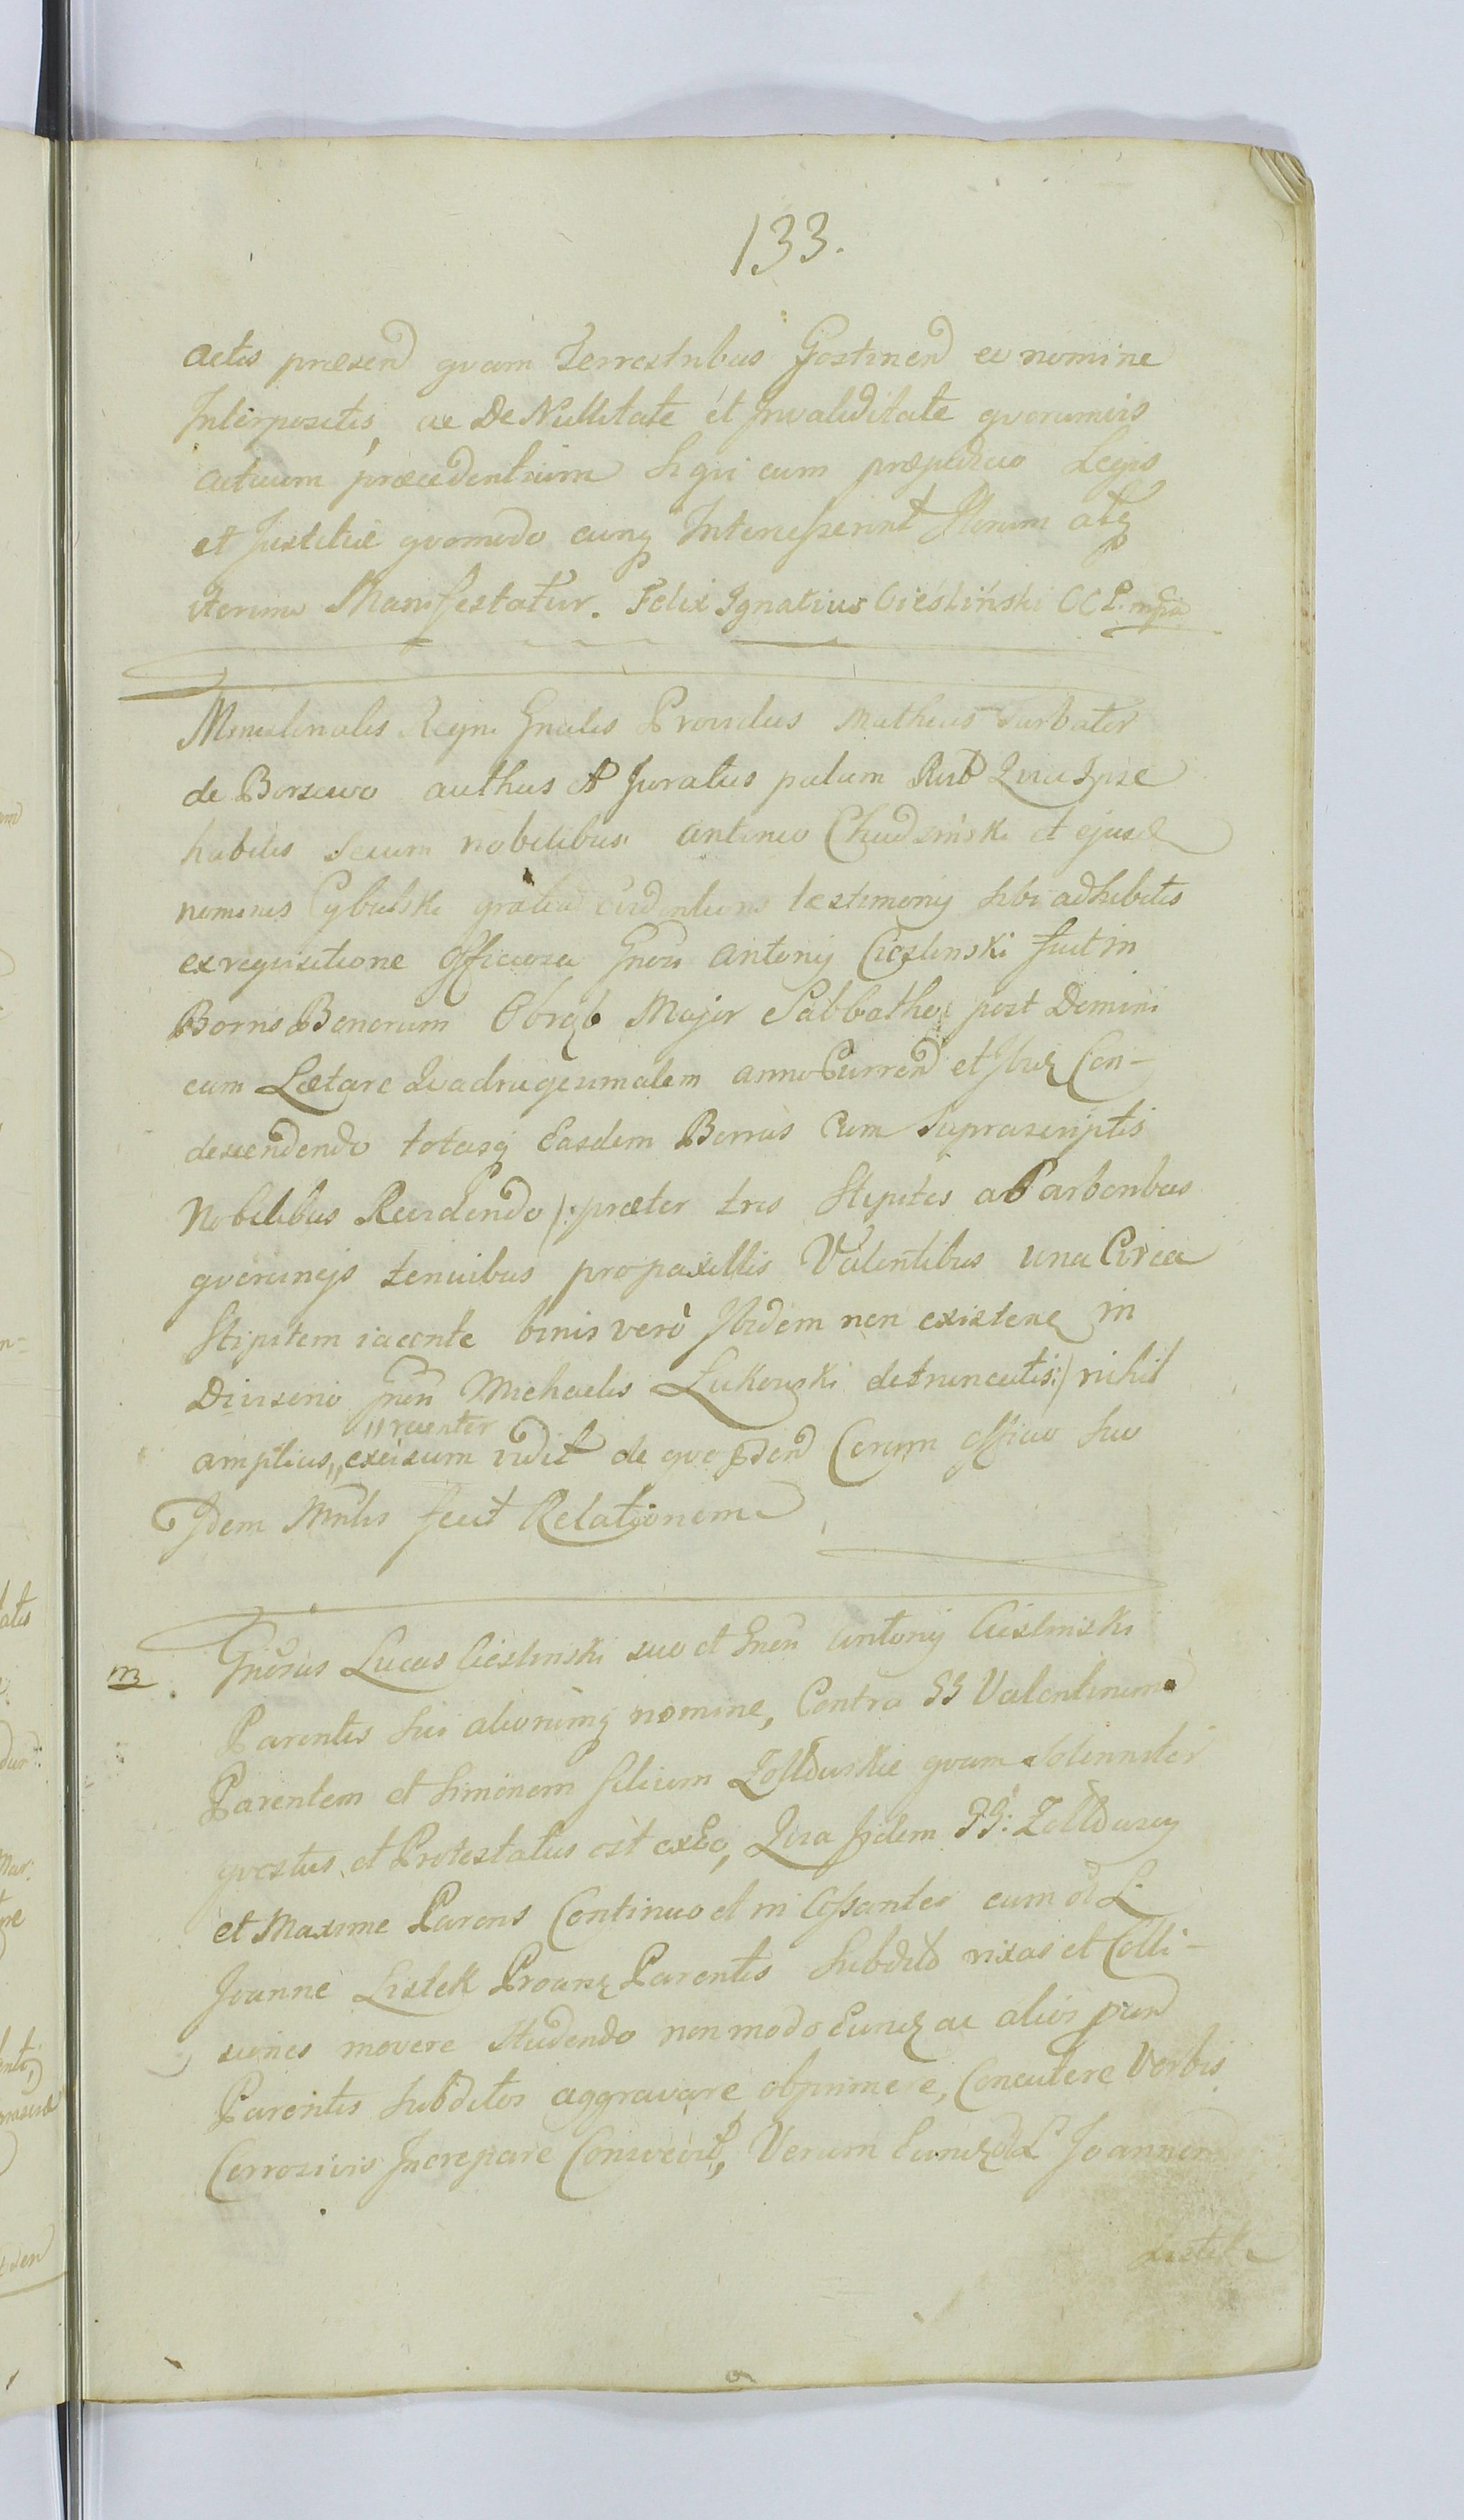 133.
actis præsend quam Terrestribus Gostinen eo nomine
Interpositis, ac De Nullitate et Invaliditate quorumvis
actuum præcedentium si qui cum præjudicio Legis
et Justitiæ quomodo cunq Intercesserint Iterum atq
iterum Manifestatur. Felix Ignatius Cieśliński mpia
Ministerialis Regni Gnalis Providus Matheus
de Borzewo authus et Juratus palam Quia Ipse
habitis secum nobilibus Antonio Chudzinski et ejusd
nominis Cybulski gratia evidentioris testimonij sibi adhibitis
ex requisitione Officiosa Gnosi Antonij Cieslinski fuit in
Borris Bonorum Obrąb Major Sabbatho post Domini
cam Lætare Quadragesimalem anno Curren et Con-
descendendo totasq Easdem Borras Cum Suprascriptis
Nobilibus Revidendo /: præter tres Stipites ab arboribus
quercinejs tenuibus pro paxillis Valentibus una Circa
Stipitem iacente binis verò Ibidem non existen in
Michaelis Łukowski detruncatis :/ nihil
recenter
amplius,, excisum vidit de quo Coram officio suo
Idem Mnlis fecit Relationem
m Gnosus Lucas Cieslinski suo et Gnosi Antonij Cieslinski
Parentis sui aliorumq nomine, Contra GG Valentinum
Parentem et Simonem filium Zołłdurskie quam solenniter
questus et Protestatus est ex Eo, Quia Iidem GG: Zołłdurscy
et Maxime Parens Continuo et in Cessanter cum L:
Joanne Listek Parentis Subdito rixas et Colli-
siones movere studendo non modo Eund ac alios
Parentis Subditos aggravare opprimere, Concutere Verbis
Corrosivis Increpare Consvevit, Verum Eund L Joannem
Listek